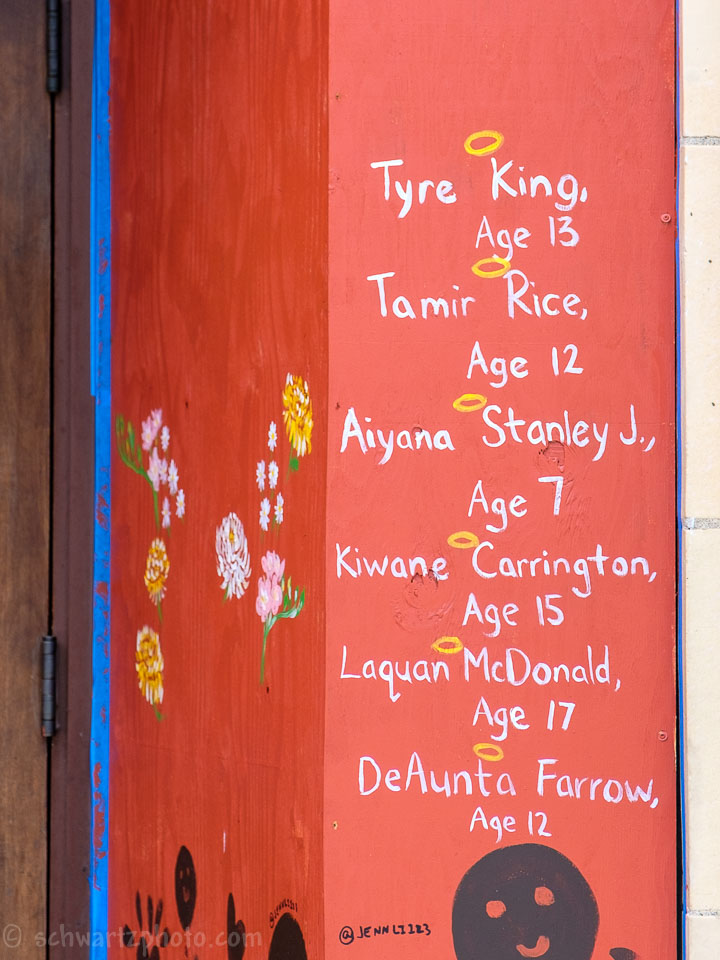 Tyre King,
Age 13
Tamir Rice,
Age 12
Aiyana Stanley J.,
Age 7
Kiwane Carrington,
Age 15
Laquan McDonald,
Age 17
DeAunta Farrow,
Age 12
© schwartzphoto.com